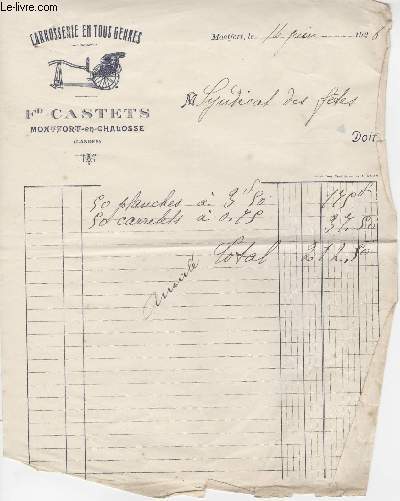 Le-livre.com
CARROSSERIE EN TOUS GENRES
Montfort, le 14 juin 1926
FD CASTETS
MONTFORT-en-CHALOSSE
(LANDES)
M Syndicat des fêtes
DOIT
50 planches à 3f50 175.00
50 carrelets à 0.75 37.50
Total 212.50